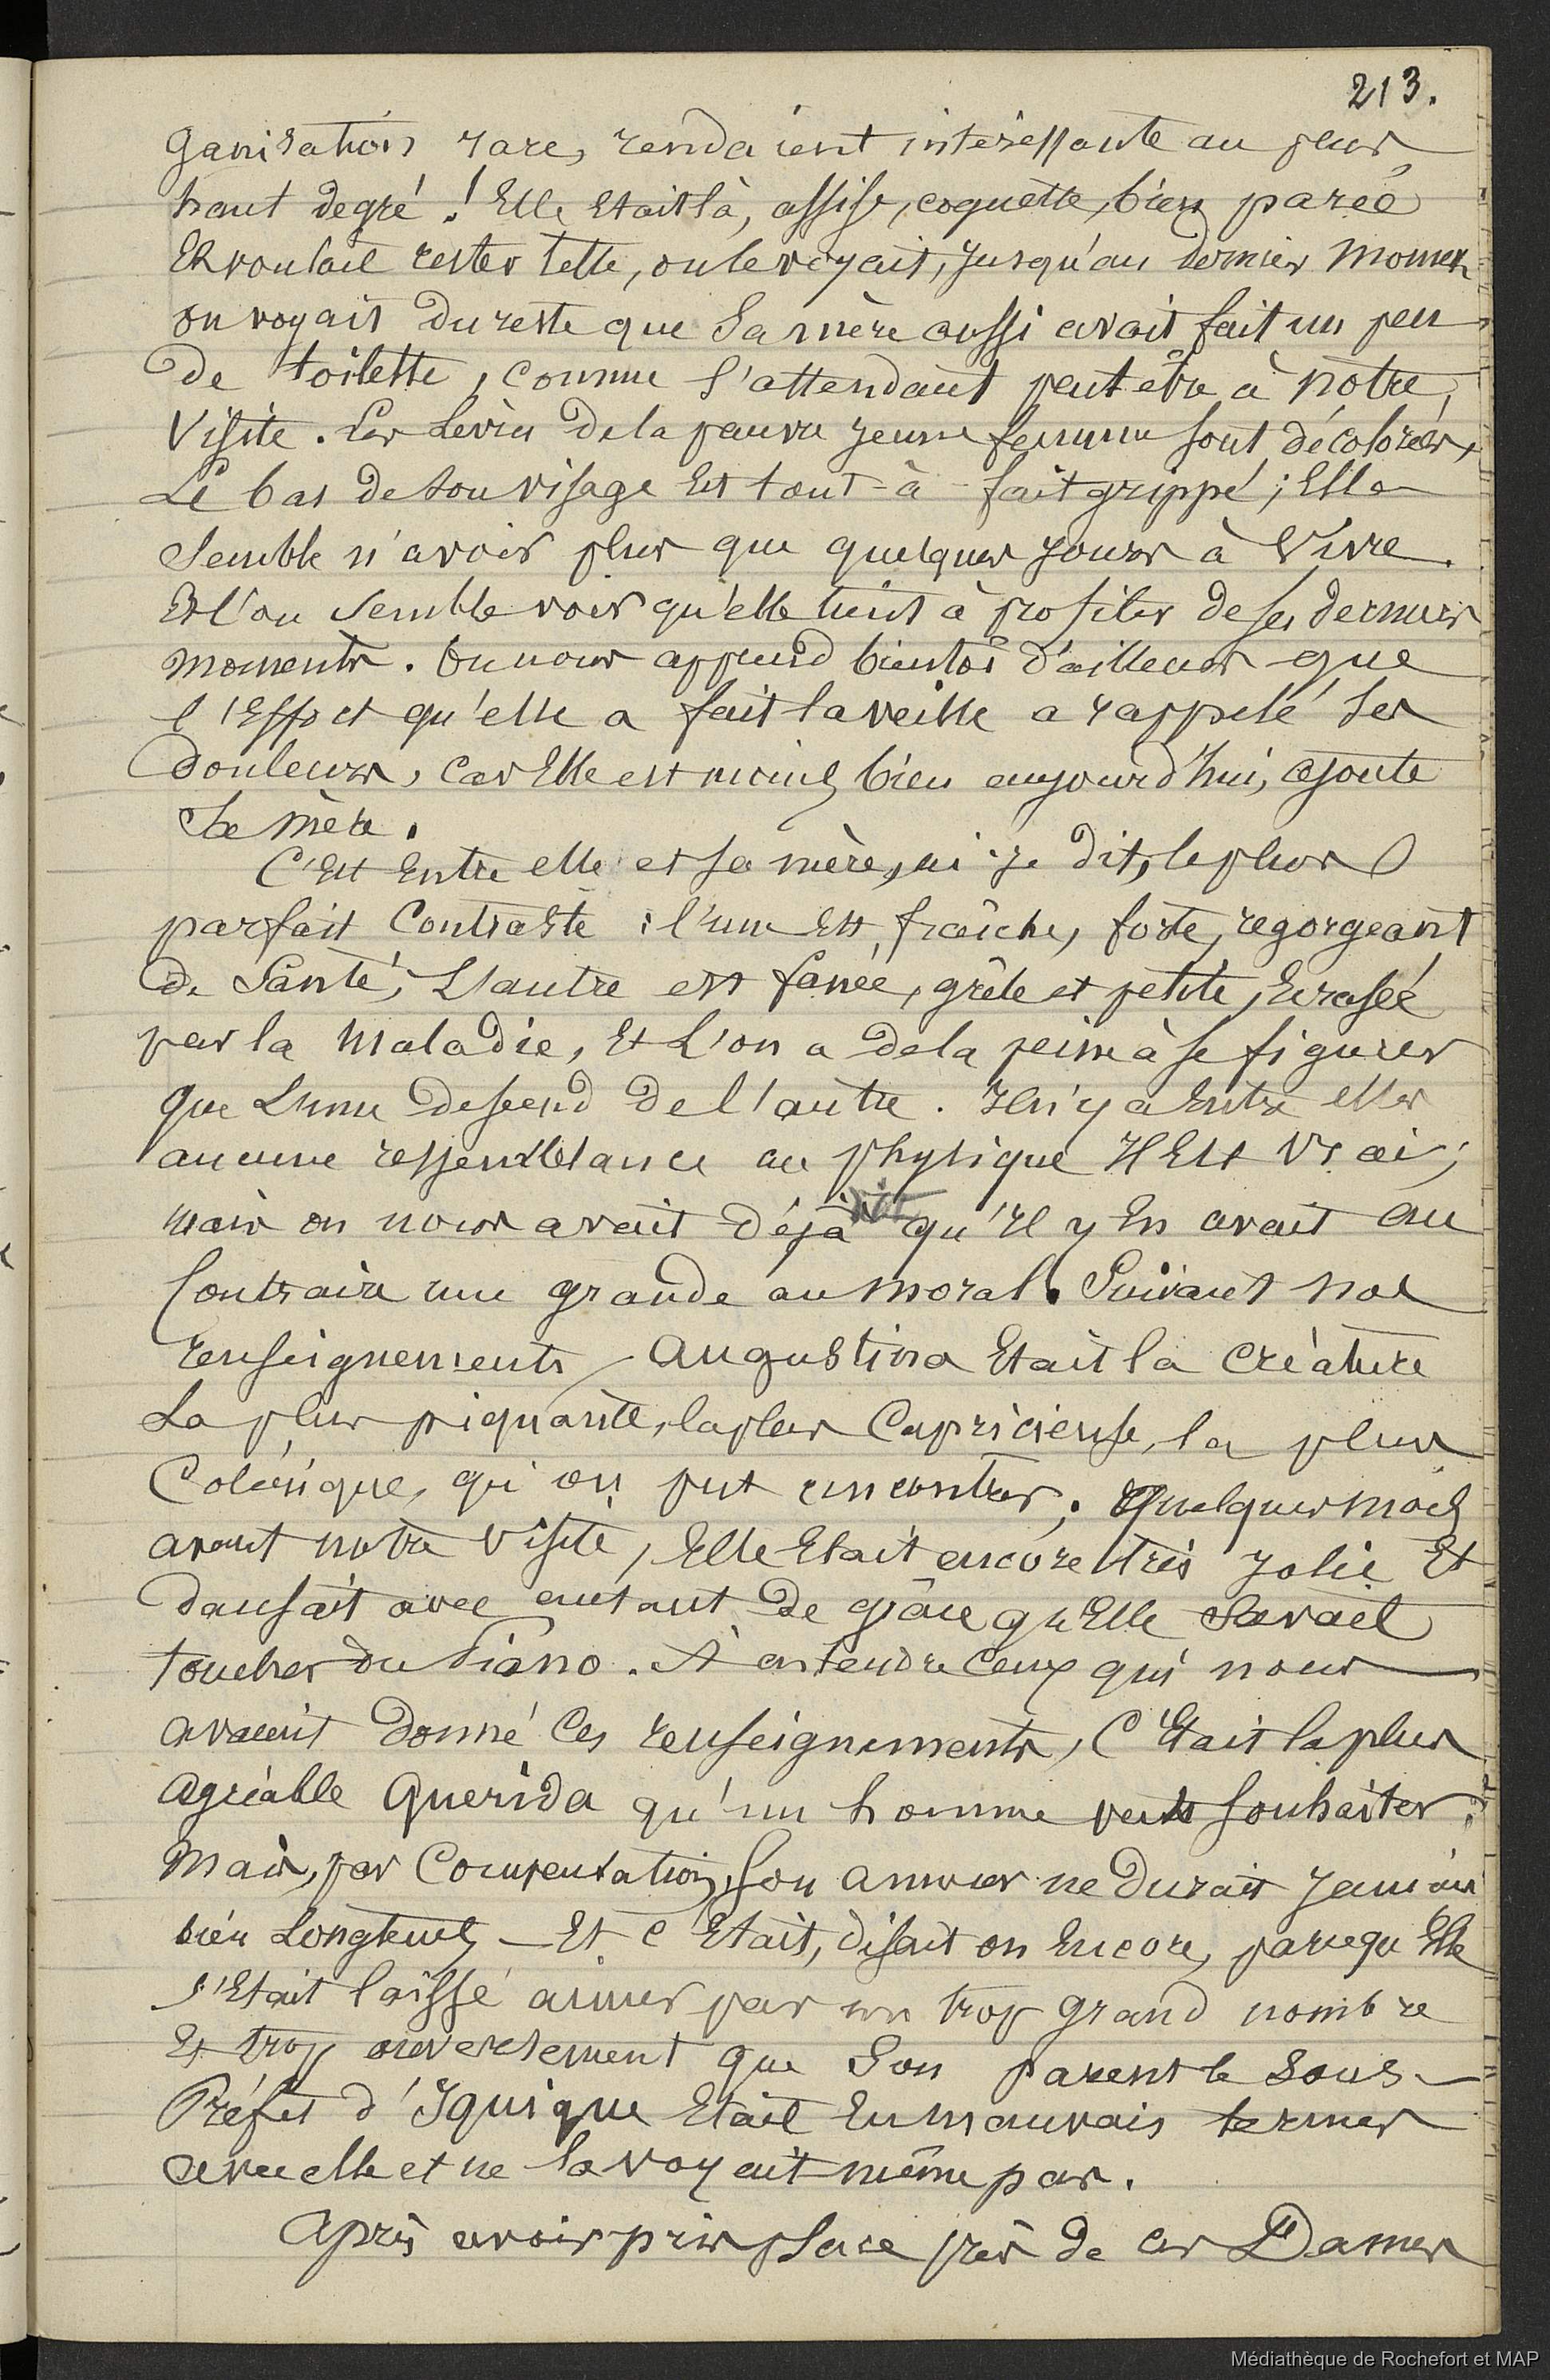 213.
ganisation rare, rendaient intéressante au plus
haut degré ! Elle Etait là, assise, coquette, bien parée
Et voulait rester telle, on le voyait, jusqu'au dernier momen
on voyait du reste que Sa mère aussi avait fait un peu
De toilette, comme s'attendant peut être à notre
Visite. Les Lèvres de la pauvre jeune femme sont décolorées,
Le bas de son visage Est tout-à-fait grippé ; Elle
Semble n'avoir plus que quelques jours à Vivre.
Et l'on semble voir qu'elle tient à profiter de ses derniers
moments. On nous apprend bientôt d'ailleurs que
l'Effort qu'elle a fait la veille a rappelé ses
Douleurs, car Elle est moins bien aujourd'hui, ajoute
Sa mère.
C'Est Entre elle et sa mère, ai-je dit, le plus
parfait Contraste : l'une Est fraîche, forte, regorgeant
de Santé, L'autre est fanée, grêle et petite, Ecrasée
par la Maladie, Et L'on a de la peine à se figurer
que L'une descend de l'autre. Il n'y a Entre elles
aucune ressemblance au physique Il Est Vrai ;
mais on nous avait déjà dit qu'Il y En avait au
Contraire une grande au moral. Suivant nos
renseignements, Augustina Etait la créature
La plus piquante, la plus Capricieuse, la plus
Colérique, qu'on put rencontrer ; Quelques mois
avant notre Visite, Elle Etait encore très jolie Et
Dansait avec autant de grâce qu'Elle Savait
toucher du Piano. A entendre Ceux qui nous
avaient Donné Ces renseignements, C'Etait la plus
agréable Querida qu'un homme souhaiter ;
Mais, par Compensation, Son amour ne Durait Jamais
bien Longtemps — Et C'Etait, disait on Encore, parcequ'Elle
s'Etait laissé aimer par un trop grand nombre
Et trop ouvertement que Son parent le Sous-
Préfet d'Iquique Etait En mauvais termes
avec elle et ne la voyait même pas.
Après avoir pris place près de ces Dames
Médiathèque de Rochefort et MAP